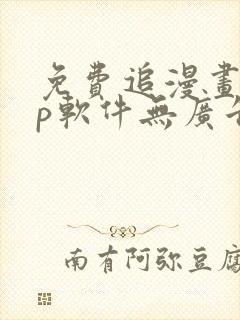 免費追漫畫
p軟件無廣告
南有阿弥豆腐